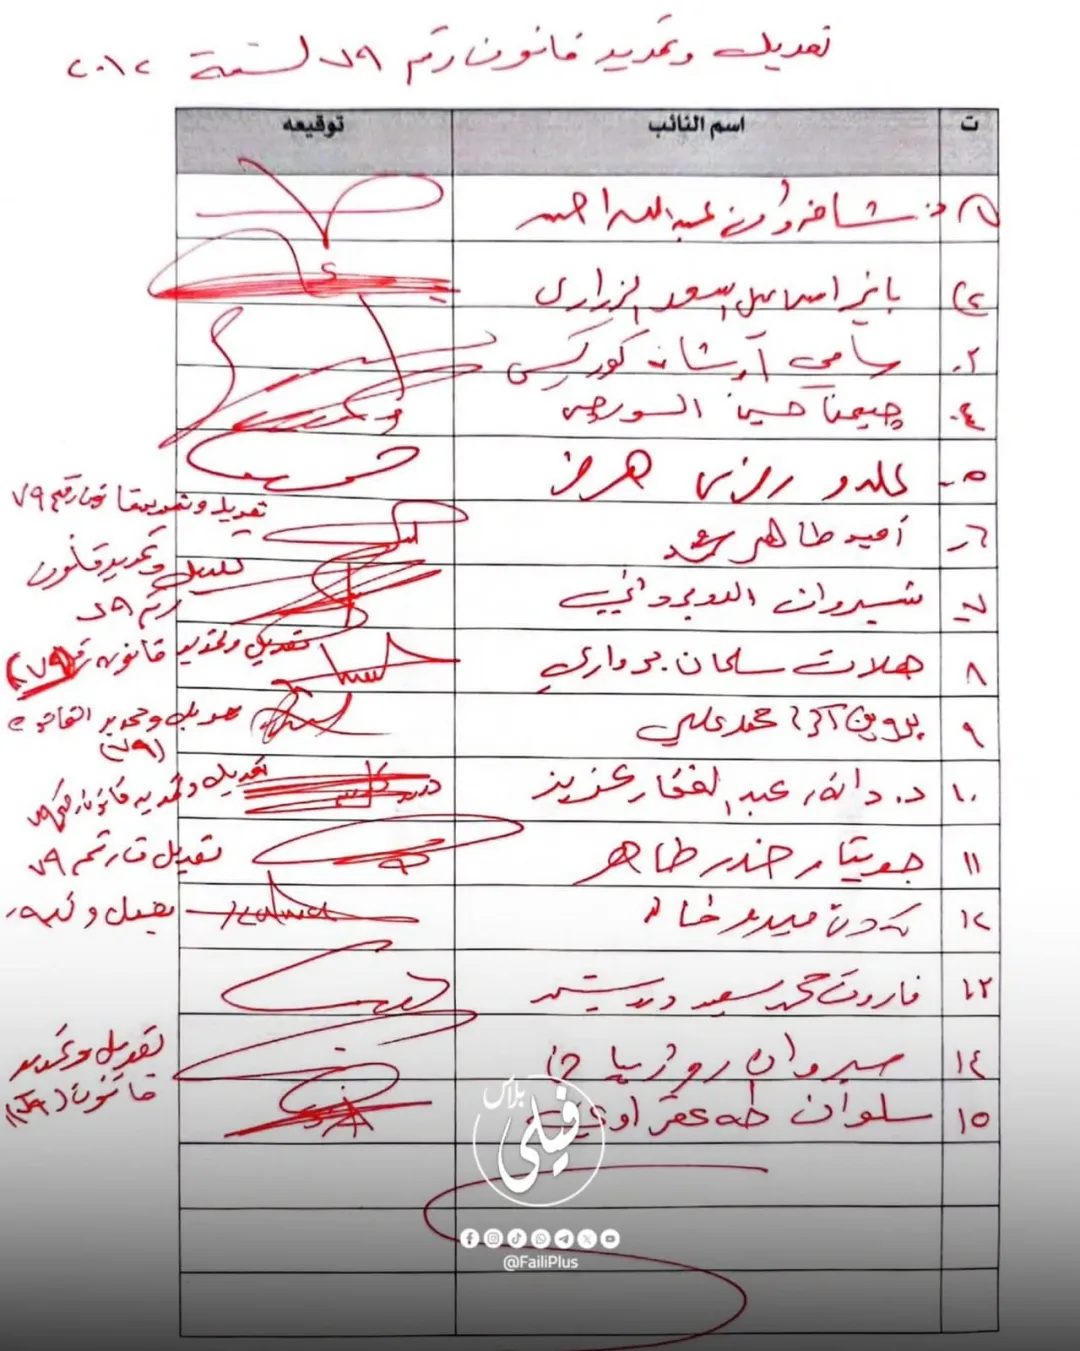 تعديل وتمديد قانون رقم ٧٩ لسنة ٢٠١٢
ت اسم النائب توقيعه
١ د. شاخوان عبدالله احمد
٢ اسماعيل اسعد
٣ سامي اوشانه كوركيس
٤ جيمن حسين السورجي
٥ رمزي
٦ اميد طاهر
تعديل وتمديد قانون رقم ٧٩
٧ شيروان الدوبرداني
تعديل وتمديد قانون
رقم ٧٩
٨ سلمان برواري
تعديل وتمديد قانون رقم (٧٩)
٩ محمد علي
تعديل وتمديد القانون
(٧٩)
١٠ د. دانة عبدالغفار عزيز
تعديل وتمديد قانون رقم ٧٩
١١ جوتيار خدر طاهر
تعديل ق رقم ٧٩
١٢
١٣ فاروق محمد سعيد
١٤ سيروان روژبياني
تعديل وتمديد
قانون
١٥ سلوان طه عقراوي
فيلي بلاس
@FailiPlus